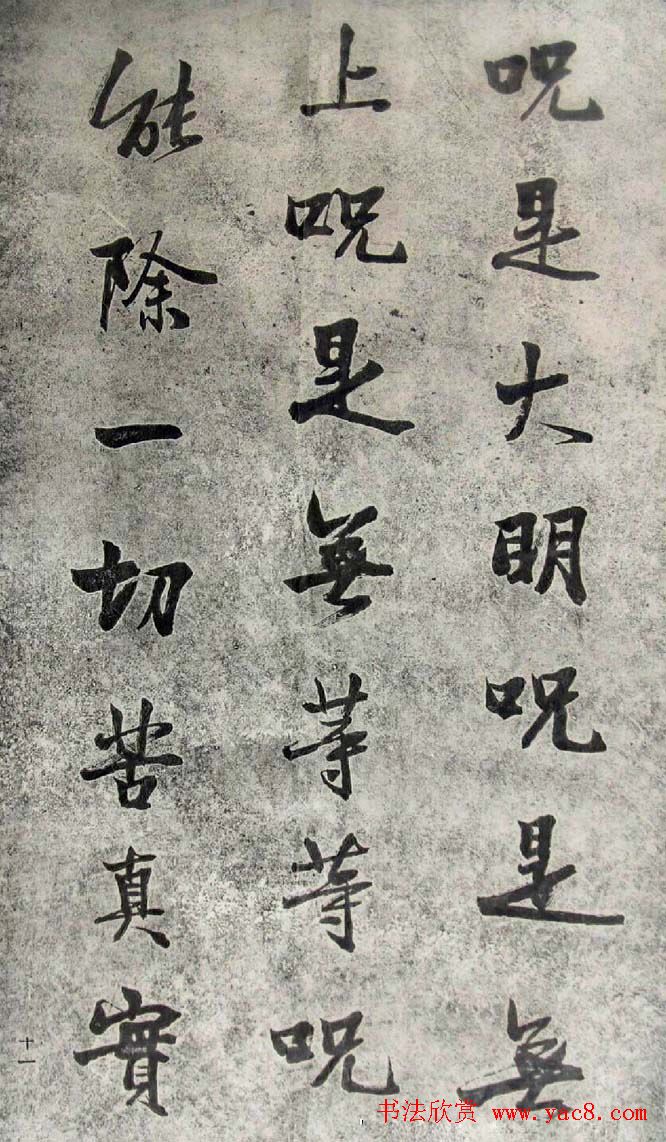 呪是大明呪是無
上呪是無等等呪
能除一切苦真實
十一
书法欣赏 www.yac8.com